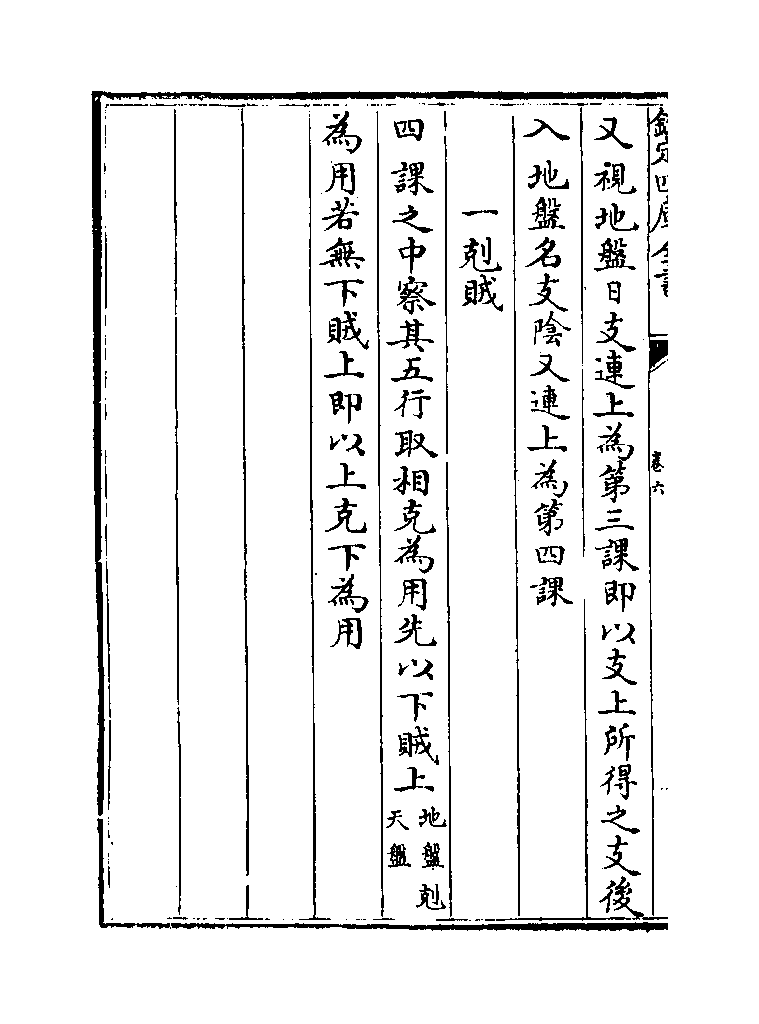 欽定四庫全書
卷六
又視地盤日支連上為第三課即以支上所得之支後
入地盤名支陰又連上為第四課
一剋賊
四課之中察其五行取相克為用先以下賊上地盤剋天盤
為用若無下賊上即以上克下為用